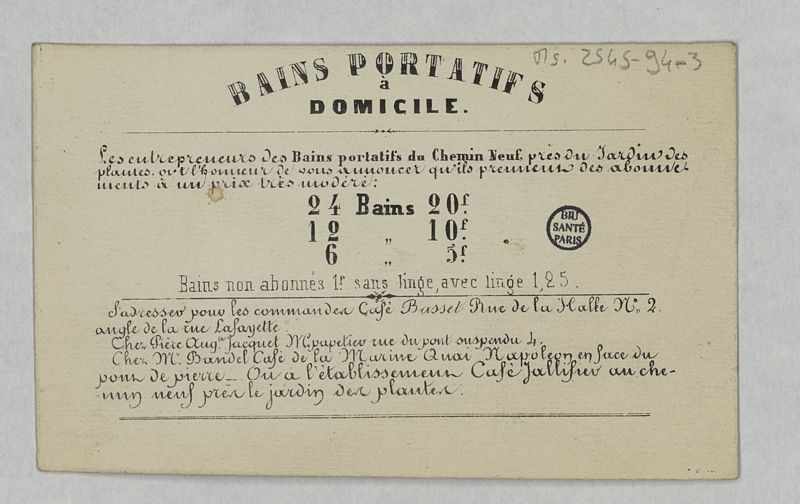 Ms. 2545-94-3
BAINS PORTATIFS
à
DOMICILE.
Les entrepreneurs des Bains portatifs du Chemin Neuf, près du Jardin des
plantes, ont l'honneur de vous annoncer qu'ils prennent des abonne-
ments à un prix très modéré:
24 Bains 20f.
12 „ 10f.
6 „ 5f.
BIU
SANTÉ
PARIS
Bains non abonnés 1f. sans linge, avec linge 1,25.
S'adresser pour les commandes Café Busset Rue de la Halle No. 2.
angle de la rue Lafayette.
Chez Pière Augte. Jacquet Md. papetier rue du pont suspendu 4.
Chez Mr. Bandel Café de la Marine Quai Napoléon en face du
pont de pierre_ Ou a l'établissement Café Jallifier au che-
min neuf près le jardin des plantes.